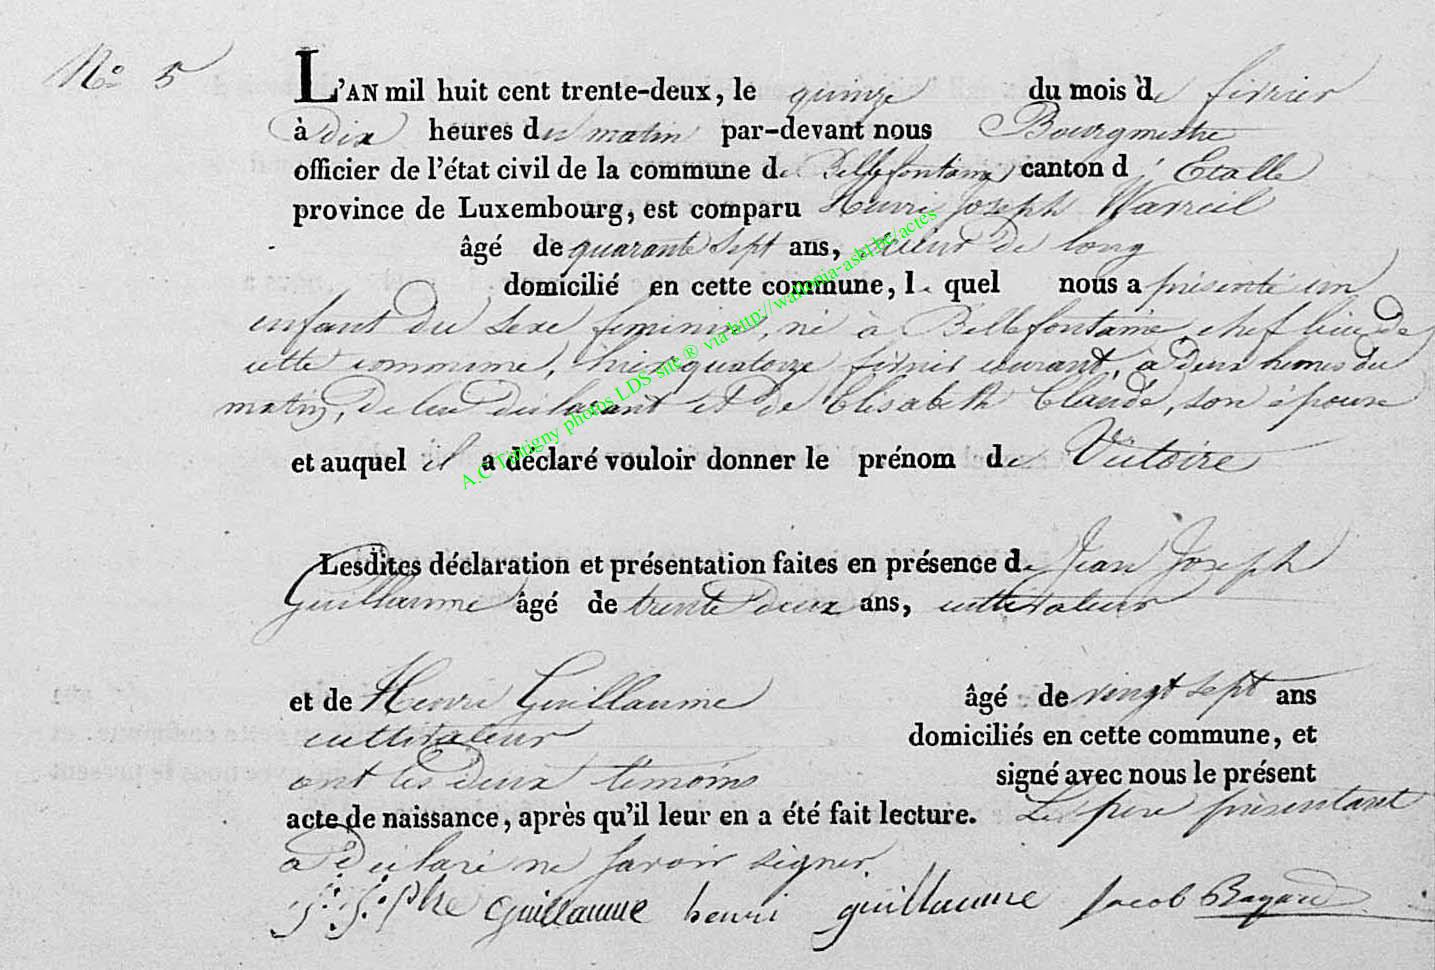 No 5
L'AN mil huit cent trente-deux, le quinze du mois de février
à dix heures du matin par-devant nous Bourgmestre
officier de l'état civil de la commune de Bellefontaine canton d'Etalle
province de Luxembourg, est comparu Henri Joseph
âgé de quarante sept ans, scieur de long
domicilié en cette commune, le quel nous a présenté un
enfant du sexe feminin, né à Bellefontaine, chef lieu de
cette commune, hier quatorze février courant, à deux heures du
matin, de lui déclarant et de Elisabeth Claude, son épouse
et auquel il a déclaré vouloir donner le prénom de Victoire
Lesdites déclaration et présentation faites en présence de Jean Joseph
Guillaume âgé de trente deux ans, cultivateur
et de Henri Guillaume âgé de vingt sept ans
cultivateur domiciliés en cette commune, et
ont les deux témoins signé avec nous le présent
acte de naissance, après qu'il leur en a été fait lecture. Le père présentant
a déclaré ne savoir signer.
guillaume henri guillaume Jacob
A.C Tintigny photos LDS site ® via http://wallonia-asbl.be/actes